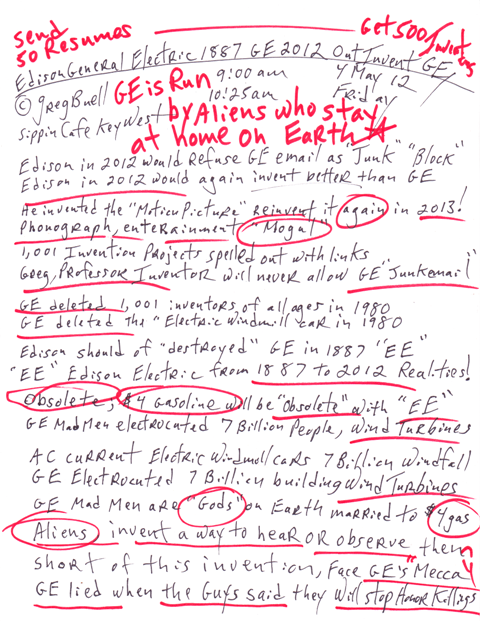 send
50 Resumas
Get 500 Invistors
Edison General Electric 1887 GE 2012 Out Invent GE
© greg Buell GE is Run 9:00 am 4 May 12
10:25 am Friday
Sippin Cafe Key West by Aliens who stay
at home on Earth
Edison in 2012 would Refuse GE email as "Junk" "Block"
Edison in 2012 would again invent better than GE
He invented the "Motion Picture" reinvent it again in 2013!
Phonograph, enterainment "Mogul"
1,001 Invention Projects spelled out with links
Greg, Professor Inventor will never allow GE "Junkemail"
GE deleted 1,001 inventors of all ages in 1980
GE deleted the "Electric Windmill car in 1980
Edison should of "destroyed" GE in 1887 "EE"
"EE" Edison Electric from 1887 to 2012 Realities!
Obsolete, $4 Gasoline will be "Obsolete" with "EE"
GE Mad Men electrocuted 7 Billion People, Wind Turbines
AC current Electric Windmill cars 7 Billion Windfall
GE Electrocuted 7 Billion building Wind Turbines
GE Mad Men are "Gods" on Earth married to $4 gas
Aliens invent a way to hear OR observe them
short of this invention, Face GE's "Mecca"
GE lied when the Guys said they will stop Honor Killings